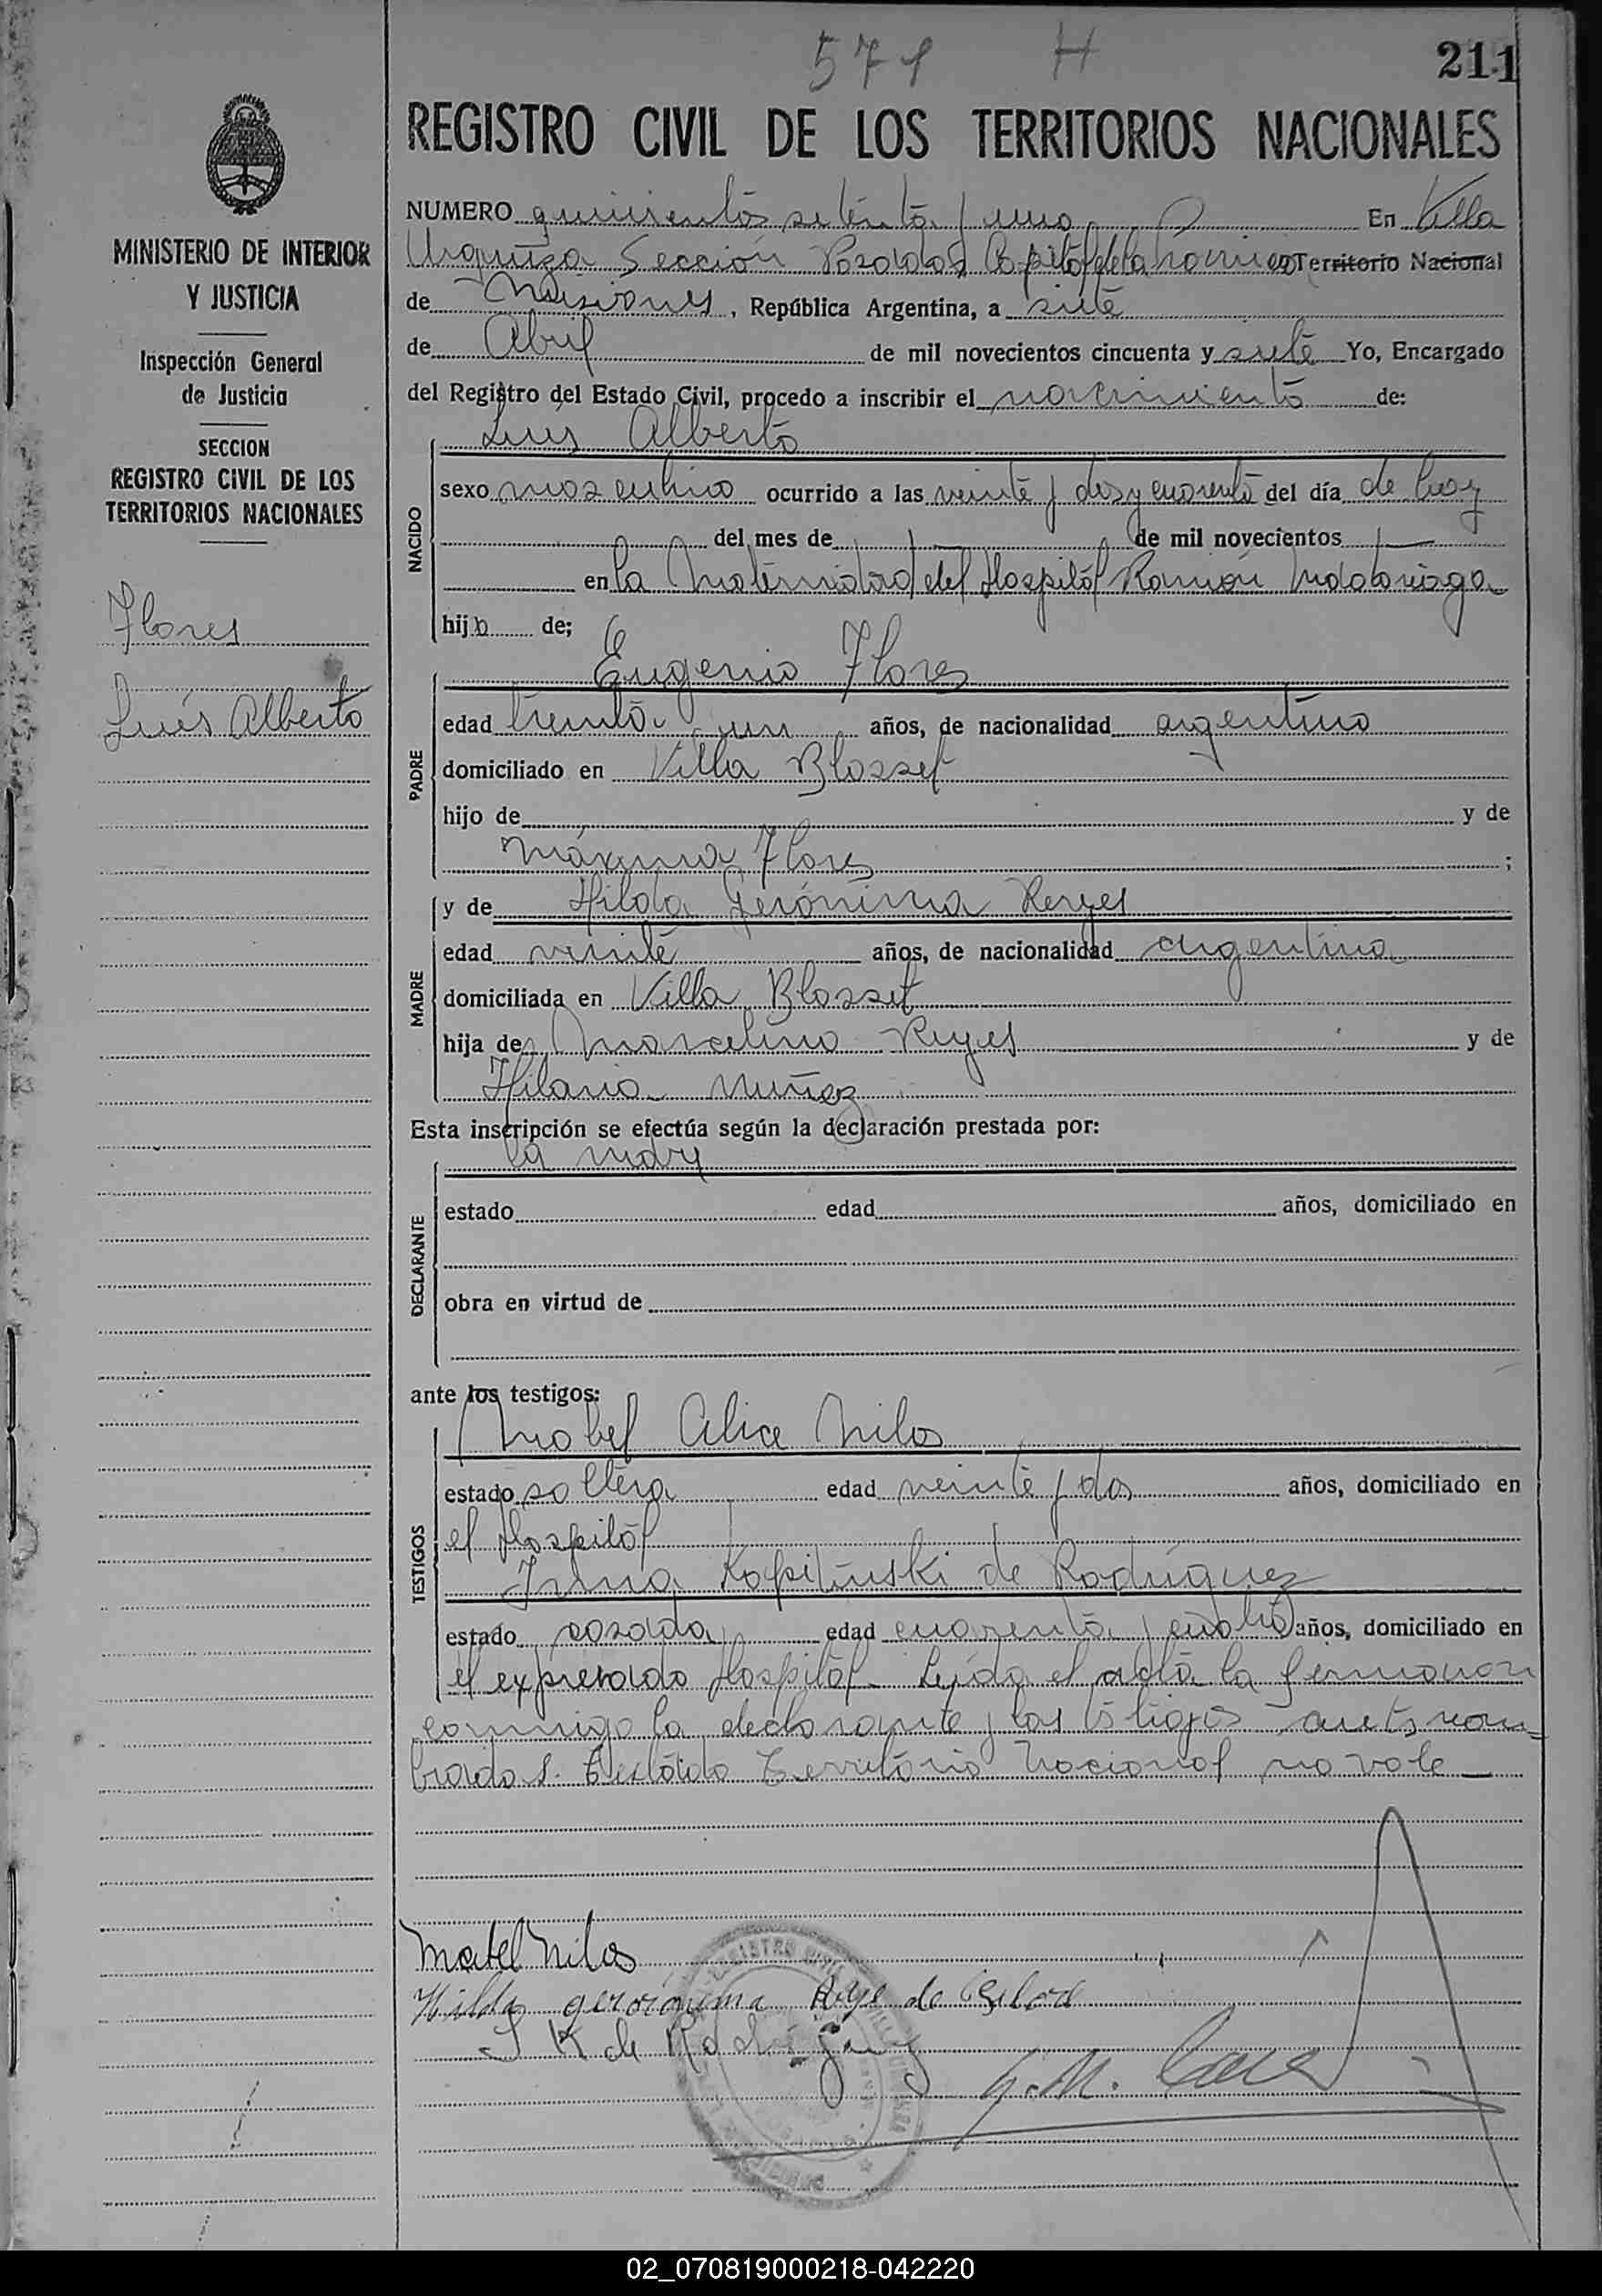 571 H
211
REGISTRO CIVIL DE LOS TERRITORIOS NACIONALES
MINISTERIO DE INTERIOR
Y JUSTICIA
Inspección General
de Justicia
SECCION
REGISTRO CIVIL DE LOS
TERRITORIOS NACIONALES
Flores
Luis Alberto
NUMERO quinientos setenta y uno En Villa
Urquiza Sección Posadas Capital de la Provincia Territorio Nacional
de Misiones, República Argentina, a siete
de Abril de mil novecientos cincuenta y siete Yo, Encargado
del Registro del Estado Civil, procedo a inscribir el nacimiento de:
NACIDO
Luis Alberto
sexo masculino ocurrido a las veinte y dos y cuarenta del día de hoy
del mes de de mil novecientos
en la Maternidad del Hospital Ramón Madariaga
hijo de;
PADRE
Eugenio Flores
edad treinta y un años, de nacionalidad argentino
domiciliado en Villa Blosset
hijo de y de
Máxima Flores ;
MADRE
y de Hilda Gerónima Reyes
edad veinte años, de nacionalidad argentina
domiciliada en Villa Blosset
hija de Marcelino Reyes y de
Hilaria Nuñez
Esta inscripción se efectúa según la declaración prestada por:
DECLARANTE
la madre
estado edad años, domiciliado en
obra en virtud de
ante los testigos:
TESTIGOS
Mabel Alice Milos
estado soltera edad veinte y dos años, domiciliado en
el Hospital
Irma Kopitinski de Rodríguez
estado casada edad cuarenta y cuatro años, domiciliado en
el expresado Hospital. Leída el acta la firmaron
conmigo la declarante y los testigos antes nom-
brados. Testado Territorio Nacional no vale
Mabel Milos
Hilda gerónima Reye de
I K de Rodriguez
02_070819000218-042220